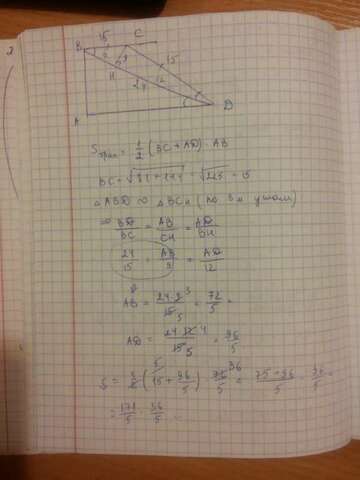 2
15
B
C
9
15
H
12
24
A
D
Sтрап = 1/2 (BC + AD) · AB
BC = √81+144 = √225 = 15
△ABD ∾ △BCH (по 3м углам)
⇒ BD/BC = AB/CH = AD/BH
24/15 = AB/9 = AD/12
AB = 24·9³/15₅ = 72/5 =
AD = 24·12⁴/15₅ = 96/5
S = (15 + 96/5) · 72³⁶/5 = 75+96/5 · 36/5 =
= 171/5 · 36/5